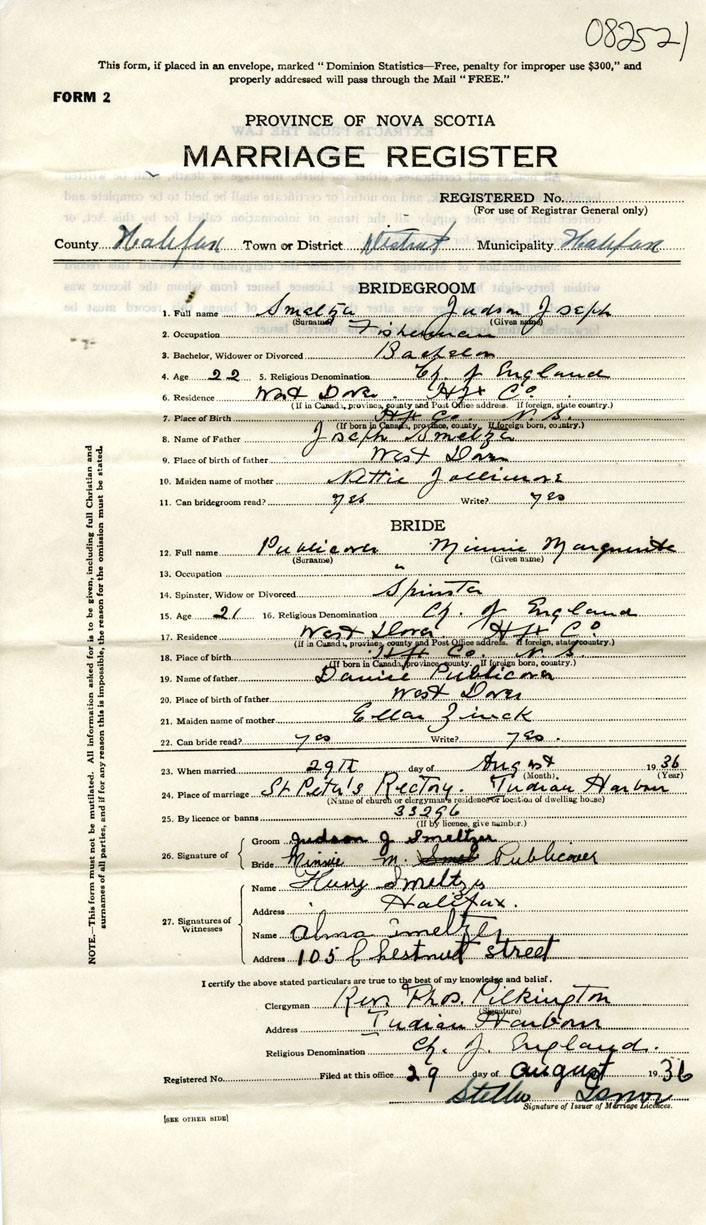 082521
This form, if placed in an envelope, marked “ Dominion Statistics—Free, penalty for improper use $300,” and
properly addressed will pass through the Mail “ FREE.”
FORM 2
PROVINCE OF NOVA SCOTIA
MARRIAGE REGISTER
REGISTERED No.
(For use of Registrar General only)
County Halifax Town or District District Municipality Halifax
BRIDEGROOM
1. Full name Smeltzer Judson Joseph
(Surname) (Given name)
2. Occupation Fisherman
3. Bachelor, Widower or Divorced Bachelor
4. Age 22 5. Religious Denomination Ch of England
6. Residence West Dover Hfx Co
(If in Canada, province, county and Post Office address. If foreign, state country.)
7. Place of Birth Hfx Co. N.S.
(If born in Canada, province, county. If foreign born, country.)
8. Name of Father Joseph Smeltzer
9. Place of birth of father West Dover
10. Maiden name of mother Nettie Jollimore
11. Can bridegroom read? yes Write? yes
BRIDE
12. Full name Publicover Minnie Marguerite
(Surname) (Given name)
13. Occupation "
14. Spinster, Widow or Divorced Spinster
15. Age 21 16. Religious Denomination Ch. of England
17. Residence West Dover Hfx Co
(If in Canada, province, county and Post Office address. If foreign, state country.)
18. Place of birth Hfx Co. N.S.
(If born in Canada, province, county. If foreign born, country.)
19. Name of father Publicover
20. Place of birth of father West Dover
21. Maiden name of mother Ella Zinck
22. Can bride read? yes Write? yes.
23. When married 29th day of August 1936
(Month) (Year)
24. Place of marriage St Peter's Rectory. Indian Harbour
(Name of church or clergyman's residence or location of dwelling house)
25. By licence or banns 33296
(If by licence, give number.)
26. Signature of
Groom Judson J Smeltzer
Bride Minnie M. Publicover
27. Signatures of Witnesses
Name Smeltzer
Address Halifax.
Name Alma Smeltzer
Address 105 Chestnut street
I certify the above stated particulars are true to the best of my knowledge and belief.
Clergyman Rev. Thos. Pilkington
(Signature)
Address Indian Harbour
Religious Denomination Ch. of England.
Registered No. Filed at this office 29 day of August 1936
Stella
Signature of Issuer of Marriage Licences.
[SEE OTHER SIDE]
NOTE.—This form must not be mutilated. All information asked for is to be given, including full Christian and
surnames of all parties, and if for any reason this is impossible, the reason for the omission must be stated.